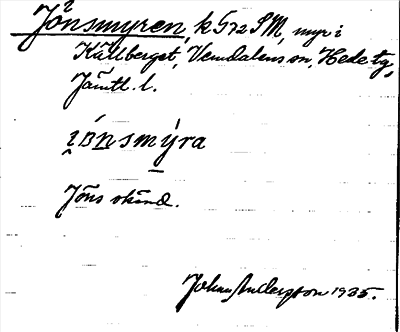 Jönsmyren, k 572 SM, myr i
Källberget, Vemdalens sn, Hede tg,
Jämtl. l.
Jöns okänd.
Johan Andersson 1935.